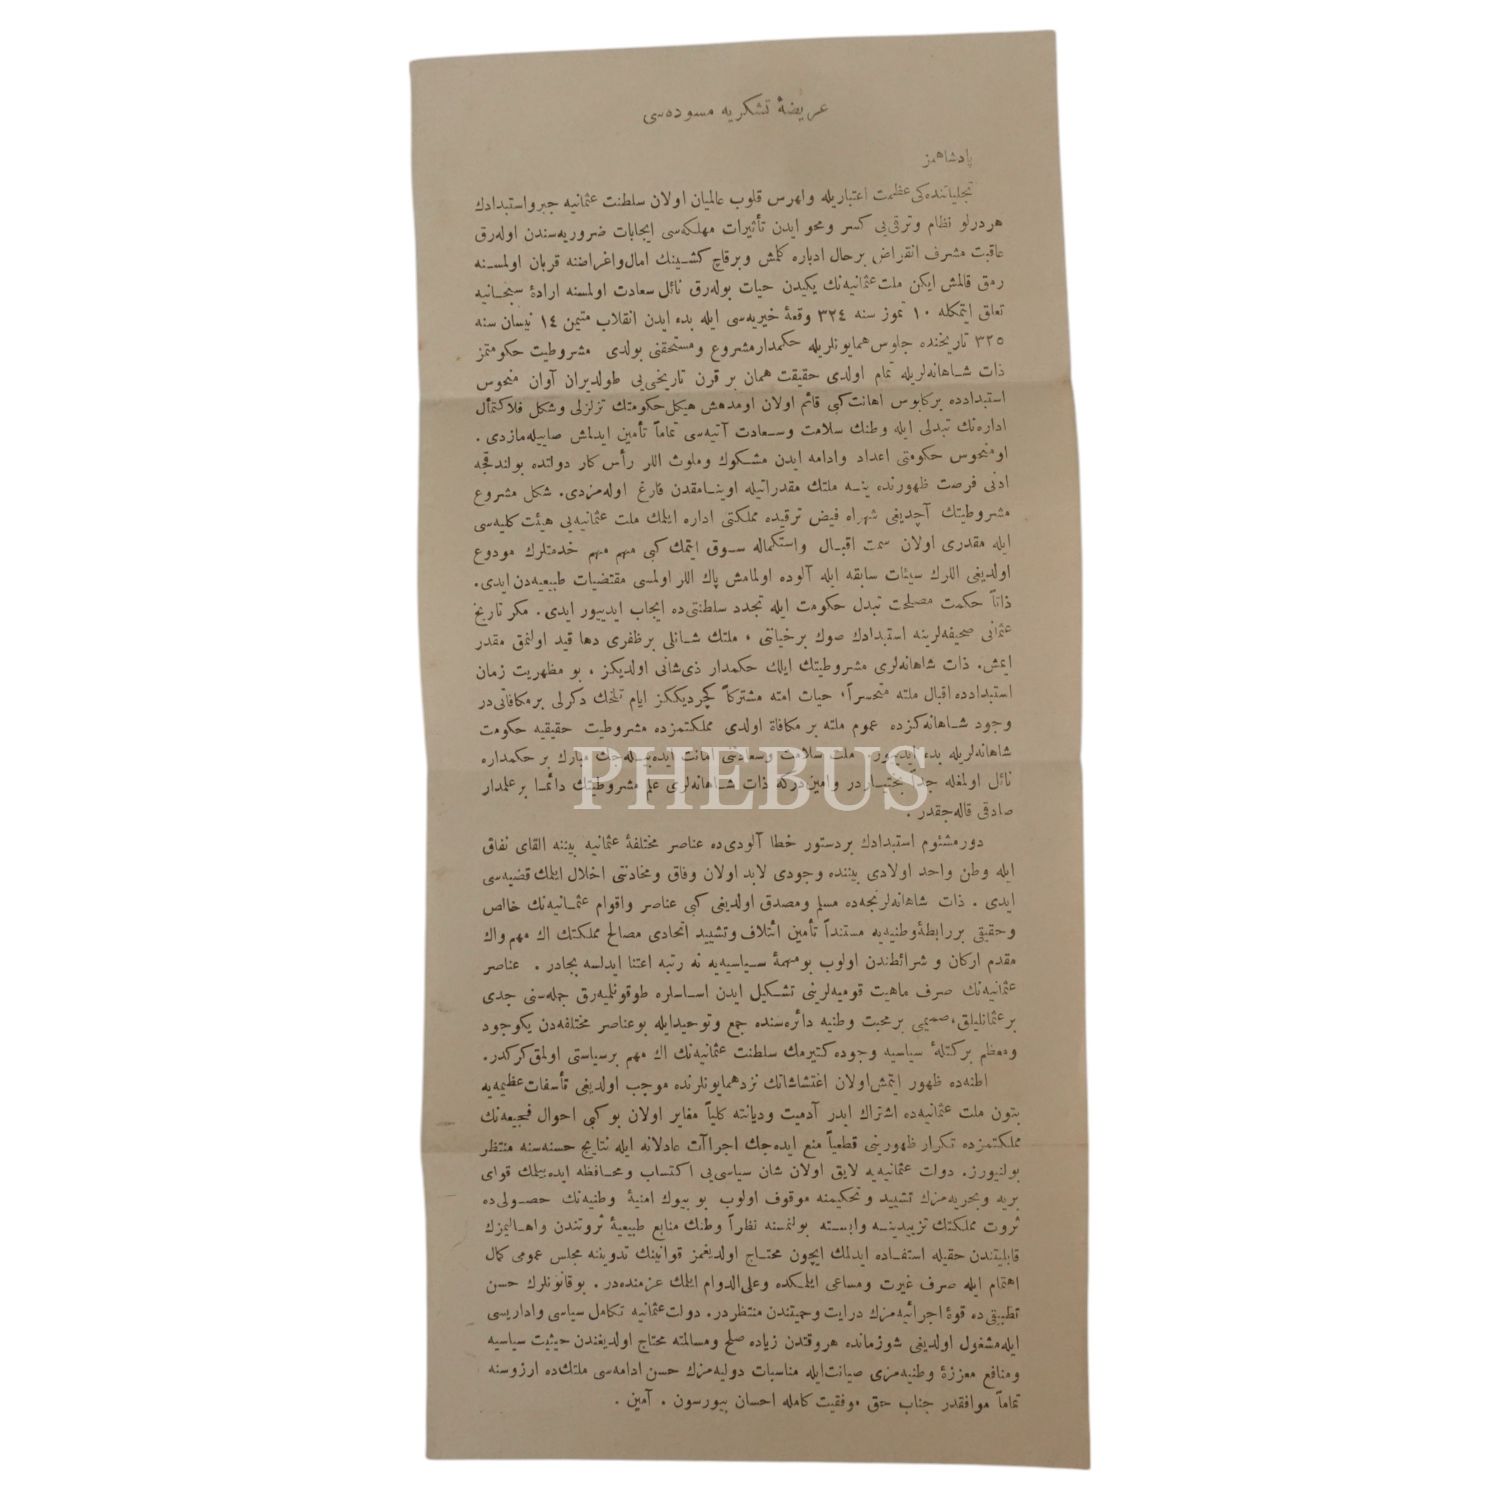 عريضۀ تشكريه مسوده‌سى
پادشاهمز
تجلياتنده‌كى عظمت اعتباريله قلوب عالميان اولان سلطنت عثمانيه جبر واستبدادك
هردرلو نظام وترقى‌يى كسر ومحو ايدن تأثيرات مهلكه‌سى ايجابات ضروريه‌سندن اوله‌رق
عاقبت مشرف انقراض برحال ادباره كلمش وبرقاچ كشينك امال واغراضنه قربان اولمسنه
رمق قالمش ايكن ملت عثمانيه‌نك يكيدن حيات بوله‌رق نائل سعادت اولمسنه ارادۀ سبحانيه
تعلق ايتمكله ١٠ تموز سنه ٣٢٤ وقعۀ خيريه‌سى ايله بدء ايدن انقلاب متيمن ١٤ نيسان سنه
٣٢٥ تاريخنده جلوس همايونلريله حكمدار مشروع ومستحقنى بولدى مشروطيت حكومتمز
ذات شاهانه‌لريله تمام اولدى حقيقت همان بر قرن تاريخى‌يى طولديران آوان منحوس
استبدادده بركابوس اهانت كبى قائم اولان اومدهش هيكل حكومتك تزلزلى وشكل فلاكتمأل
اداره‌نك تبدلى ايله وطنك سلامت وسعادت آتيه‌سى تماماً تأمين ايدلمش صاييله‌مازدى .
اومنحوس حكومتى اعداد وادامه ايدن مشكوك وملوث اللر رأس كار دولتده بولندقجه
ادنى فرصت ظهورنده ينه ملتك مقدراتيله اوينامقدن فارغ اوله‌مزدى. شكل مشروع
مشروطيتك آچديغى شهراه فيض ترقيده مملكتى اداره ايلمك ملت عثمانيه‌يى هيئت كليه‌سى
ايله مقدرى اولان سمت اقبال واستكماله سوق ايتمك كبى مهم مهم خدمتلرك مودوع
اولديغى اللرك سيئات سابقه ايله آلوده اولمامش پاك اللر اولمسى مقتضيات طبيعيه‌دن ايدى.
ذاتاً حكمت مصلحت تبدل حكومت ايله تجدد سلطنتى‌ده ايجاب ايدييور ايدى . مكر تاريخ
عثمانى صحيفه‌لرينه استبدادك صوك برخيانتى ، ملتك شانلى برظفرى دها قيد اولنمق مقدر
ايمش. ذات شاهانه‌لرى مشروطيتك ايلك حكمدار ذى‌شانى اولديكز . بو مظهريت زمان
استبدادده اقبال ملته متحسراً، حيات امته مشتركاً كچرديككز ايام تلخك دكرلى برمكافاتى‌در
وجود شاهانه‌كزده عموم ملته بر مكافاة اولدى مملكتمزده مشروطيت حقيقيه حكومت
شاهانه‌لريله بدء ايدييور. ملت سلامت وسعادتنى امانت ايده‌بيله‌جك مبارك بر حكمداره
نائل اولمغله جداً بختياردر وامين‌دركه ذات شاهانه‌لرى علم مشروطيتك دائما بر علمدار
صادقى قاله‌جقدر .
دور مشئوم استبدادك بر دستور خطا آلودى‌ده عناصر مختلفۀ عثمانيه بيننه القاى نفاق
ايله وطن واحد اولادى بيننده وجودى لابد اولان وفاق ومخادنتى اخلال ايلمك قضيه‌سى
ايدى . ذات شاهانه‌لرنجه‌ده مسلم ومصدق اولديغى كبى عناصر واقوام عثمانيه‌نك خالص
وحقيقى بررابطۀ وطنيه‌يه مستنداً تأمين ائتلاف وتشييد اتحادى مصالح مملكتك اك مهم واك
مقدم اركان و شرائطندن اولوب بومهمۀ سياسيه‌يه نه رتبه اعتنا ايدلسه بجادر . عناصر
عثمانيه‌نك صرف ماهيت قوميه‌لرينى تشكيل ايدن اساسلره طوقونلميه‌رق جمله‌سنى جدى
بر عثمانليلق، صميمى بر محبت وطنيه دائره‌سنده جمع وتوحيد ايله بو عناصر مختلفه‌دن يكوجود
ومعظم بركتلۀ سياسيه وجوده كتيرمك سلطنت عثمانيه‌نك اك مهم برسياستى اولمق كركدر.
اطنه‌ده ظهور ايتمش اولان اغتشاشاتك نزد همايونلرنده موجب اولديغى تأسفات عظيمه‌يه
بتون ملت عثمانيه‌ده اشتراك ايدر آدميت وديانته كلياً مغاير اولان بو كبى احوال فجيعه‌نك
مملكتمزده تكرار ظهورينى قطعياً منع ايده‌جك اجراآت عادلانه ايله نتايج حسنه‌سنه منتظر
بولنيورز. دولت عثمانيه‌يه لايق اولان شان سياسى‌يى اكتساب ومحافظه ايده‌بيلمك قواى
بريه وبحريه‌مزك تشييد وتحكيمنه موقوف اولوب بو بيوك امنيۀ وطنيه‌نك حصولى‌ده
ثروت مملكتك تزييدينه وابسته بولنمسنه نظراً وطنك منابع طبيعيۀ ثروتندن واهاليمزك
قابليتندن حقيله استفاده ايدلمك ايچون محتاج اولديغمز قوانينك تدويننه مجلس عمومى كمال
اهتمام ايله صرف غيرت ومساعى ايلمكده وعلى‌الدوام ايلمك عزمنده‌در . بوقانونلرك حسن
تطبيقى‌ده قوۀ اجرائيه‌مزك درايت وحميتندن منتظردر. دولت عثمانيه تكامل سياسى واداريسى
ايله مشغول اولديغى شو زمانده هروقتدن زياده صلح ومسالمته محتاج اولديغندن حيثيت سياسيه
ومنافع معززۀ وطنيه‌مزى صيانت ايله مناسبات دوليه‌مزك حسن ادامه‌سى ملتك‌ده ارزوسنه
تماماً موافقدر جناب حق موفقيت كامله احسان بيورسون . آمين .
PHEBUS